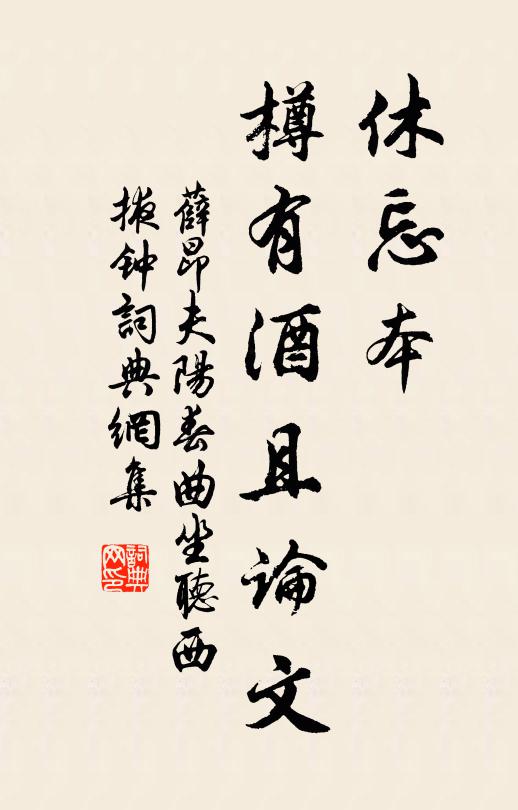 休忘本
樽有酒且論文
薛昂夫陽春曲坐聽西
掖钟詞典網集
詞典网印